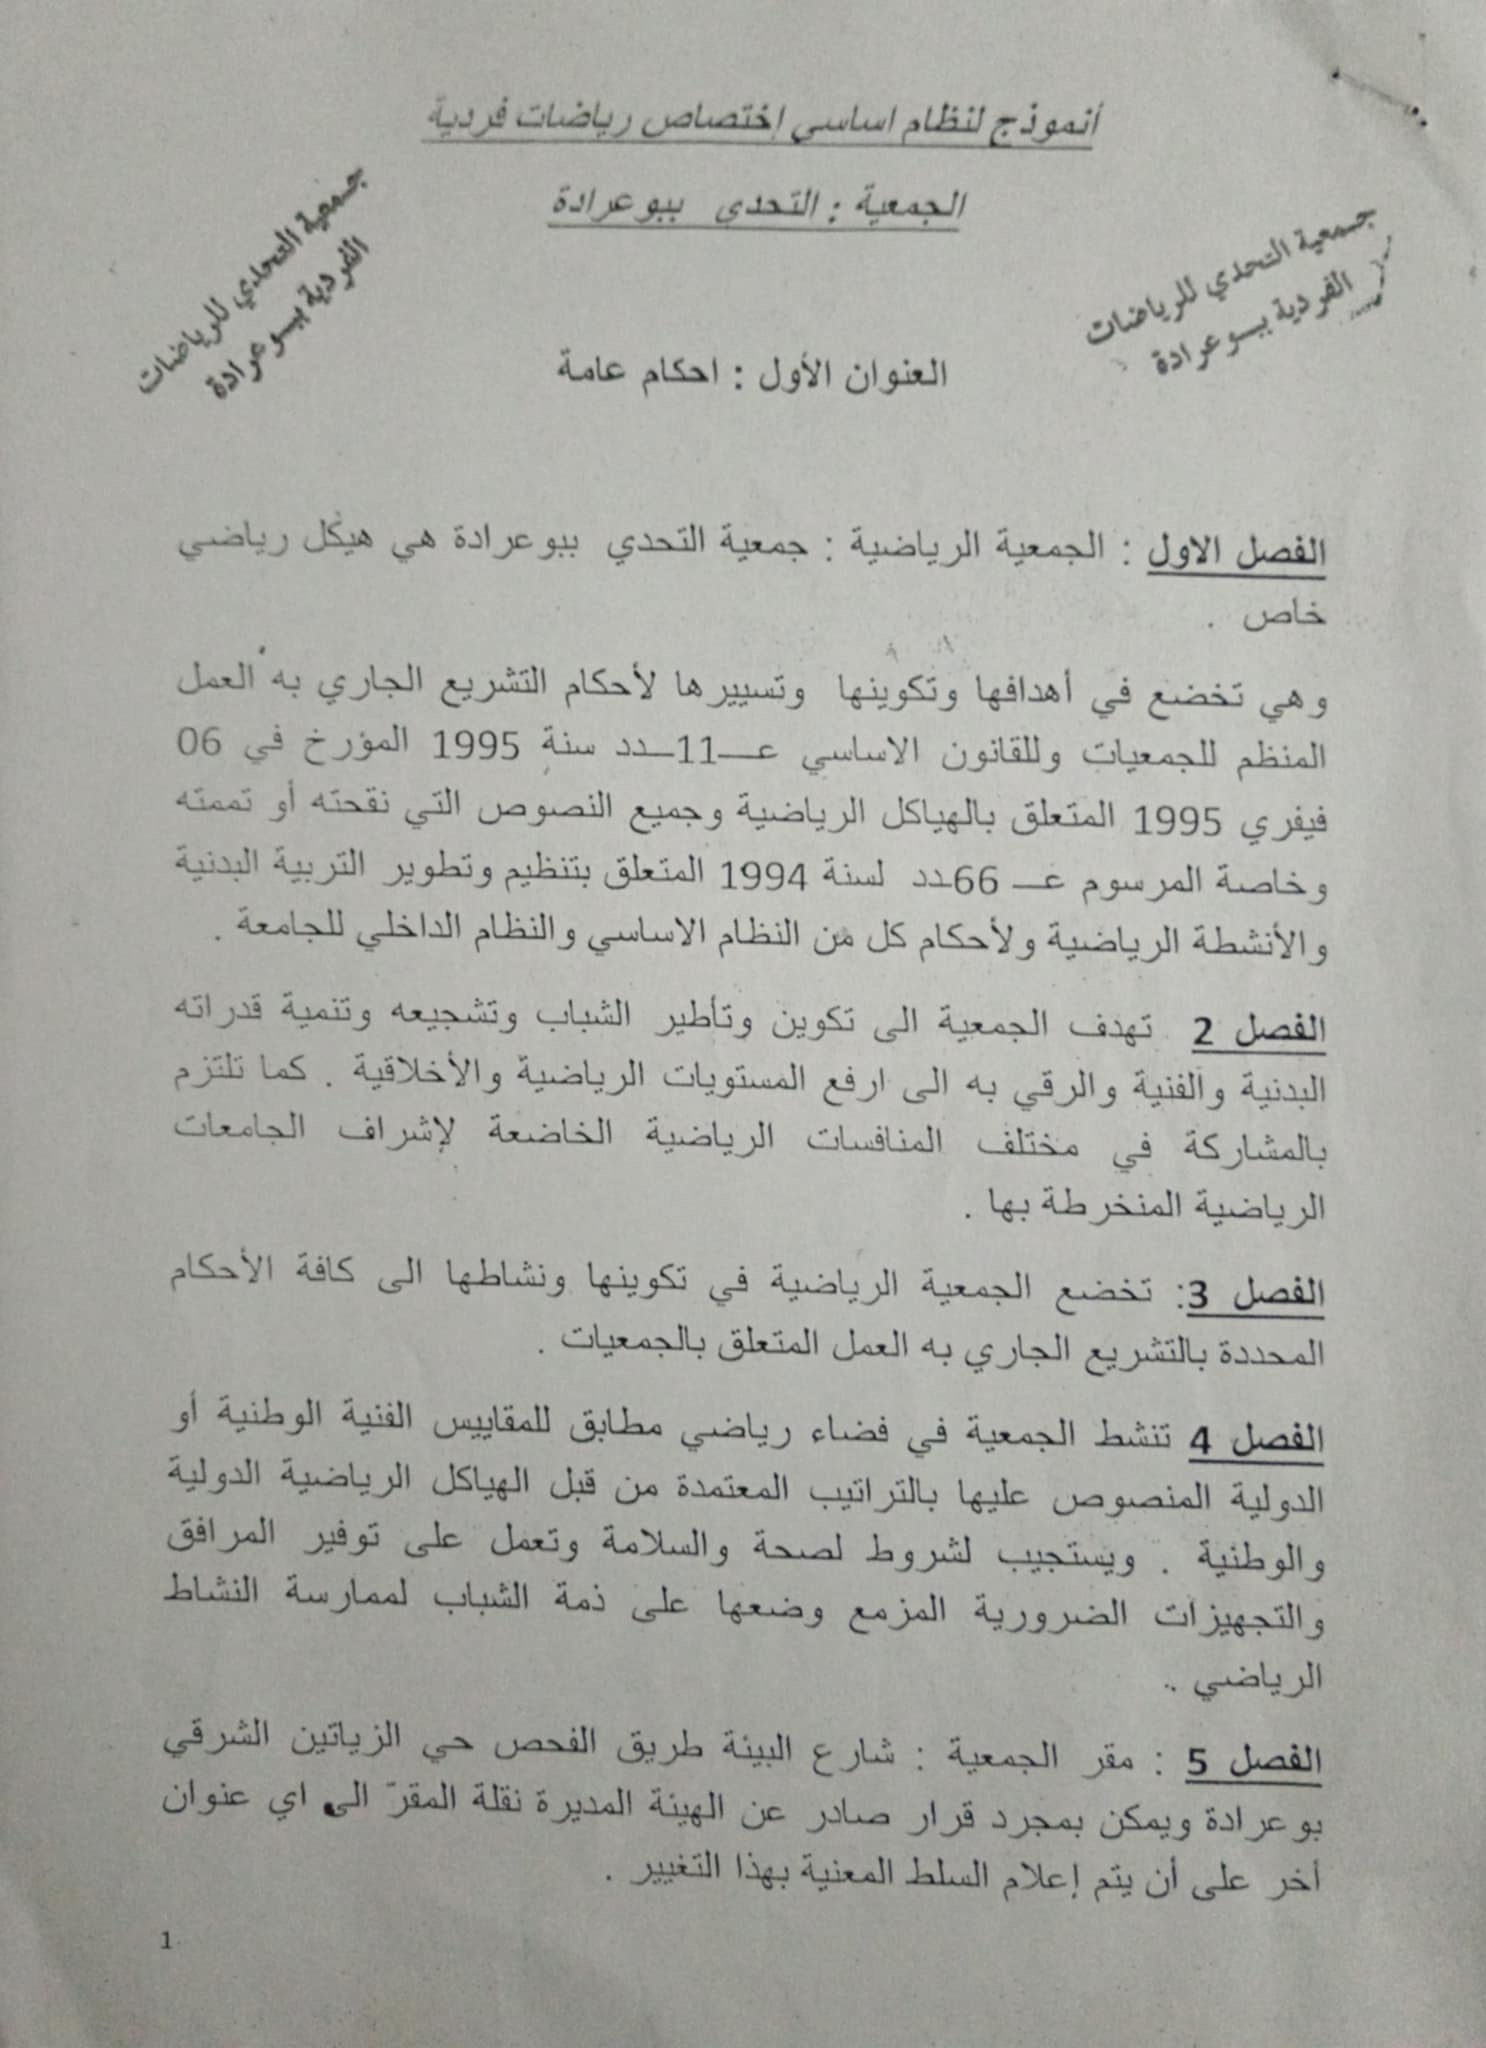 أنموذج لنظام اساسي إختصاص رياضات فردية
الجمعية : التحدى ببوعرادة
جمعية التحدي للرياضات
الفردية ببوعرادة
جمعية التحدي للرياضات
الفردية ببوعرادة
العنوان الأول : احكام عامة
الفصل الاول : الجمعية الرياضية : جمعية التحدي ببوعرادة هي هيكل رياضي
خاص .
وهي تخضع في أهدافها وتكوينها وتسييرها لأحكام التشريع الجاري به العمل
المنظم للجمعيات وللقانون الاساسي عــ11ــدد سنة 1995 المؤرخ في 06
فيفري 1995 المتعلق بالهياكل الرياضية وجميع النصوص التي نقحته أو تممته
وخاصة المرسوم عــ 66ـدد لسنة 1994 المتعلق بتنظيم وتطوير التربية البدنية
والأنشطة الرياضية ولأحكام كل من النظام الاساسي والنظام الداخلي للجامعة .
الفصل 2 تهدف الجمعية الى تكوين وتأطير الشباب وتشجيعه وتنمية قدراته
البدنية والفنية والرقي به الى ارفع المستويات الرياضية والأخلاقية . كما تلتزم
بالمشاركة في مختلف المنافسات الرياضية الخاضعة لإشراف الجامعات
الرياضية المنخرطة بها .
الفصل 3: تخضع الجمعية الرياضية في تكوينها ونشاطها الى كافة الأحكام
المحددة بالتشريع الجاري به العمل المتعلق بالجمعيات .
الفصل 4 تنشط الجمعية في فضاء رياضي مطابق للمقاييس الفنية الوطنية أو
الدولية المنصوص عليها بالتراتيب المعتمدة من قبل الهياكل الرياضية الدولية
والوطنية . ويستجيب لشروط لصحة والسلامة وتعمل على توفير المرافق
والتجهيزات الضرورية المزمع وضعها على ذمة الشباب لممارسة النشاط
الرياضي ..
الفصل 5 : مقر الجمعية : شارع البيئة طريق الفحص حي الزياتين الشرقي
بوعرادة ويمكن بمجرد قرار صادر عن الهيئة المديرة نقلة المقرّ الى اي عنوان
أخر على أن يتم إعلام السلط المعنية بهذا التغيير .
1